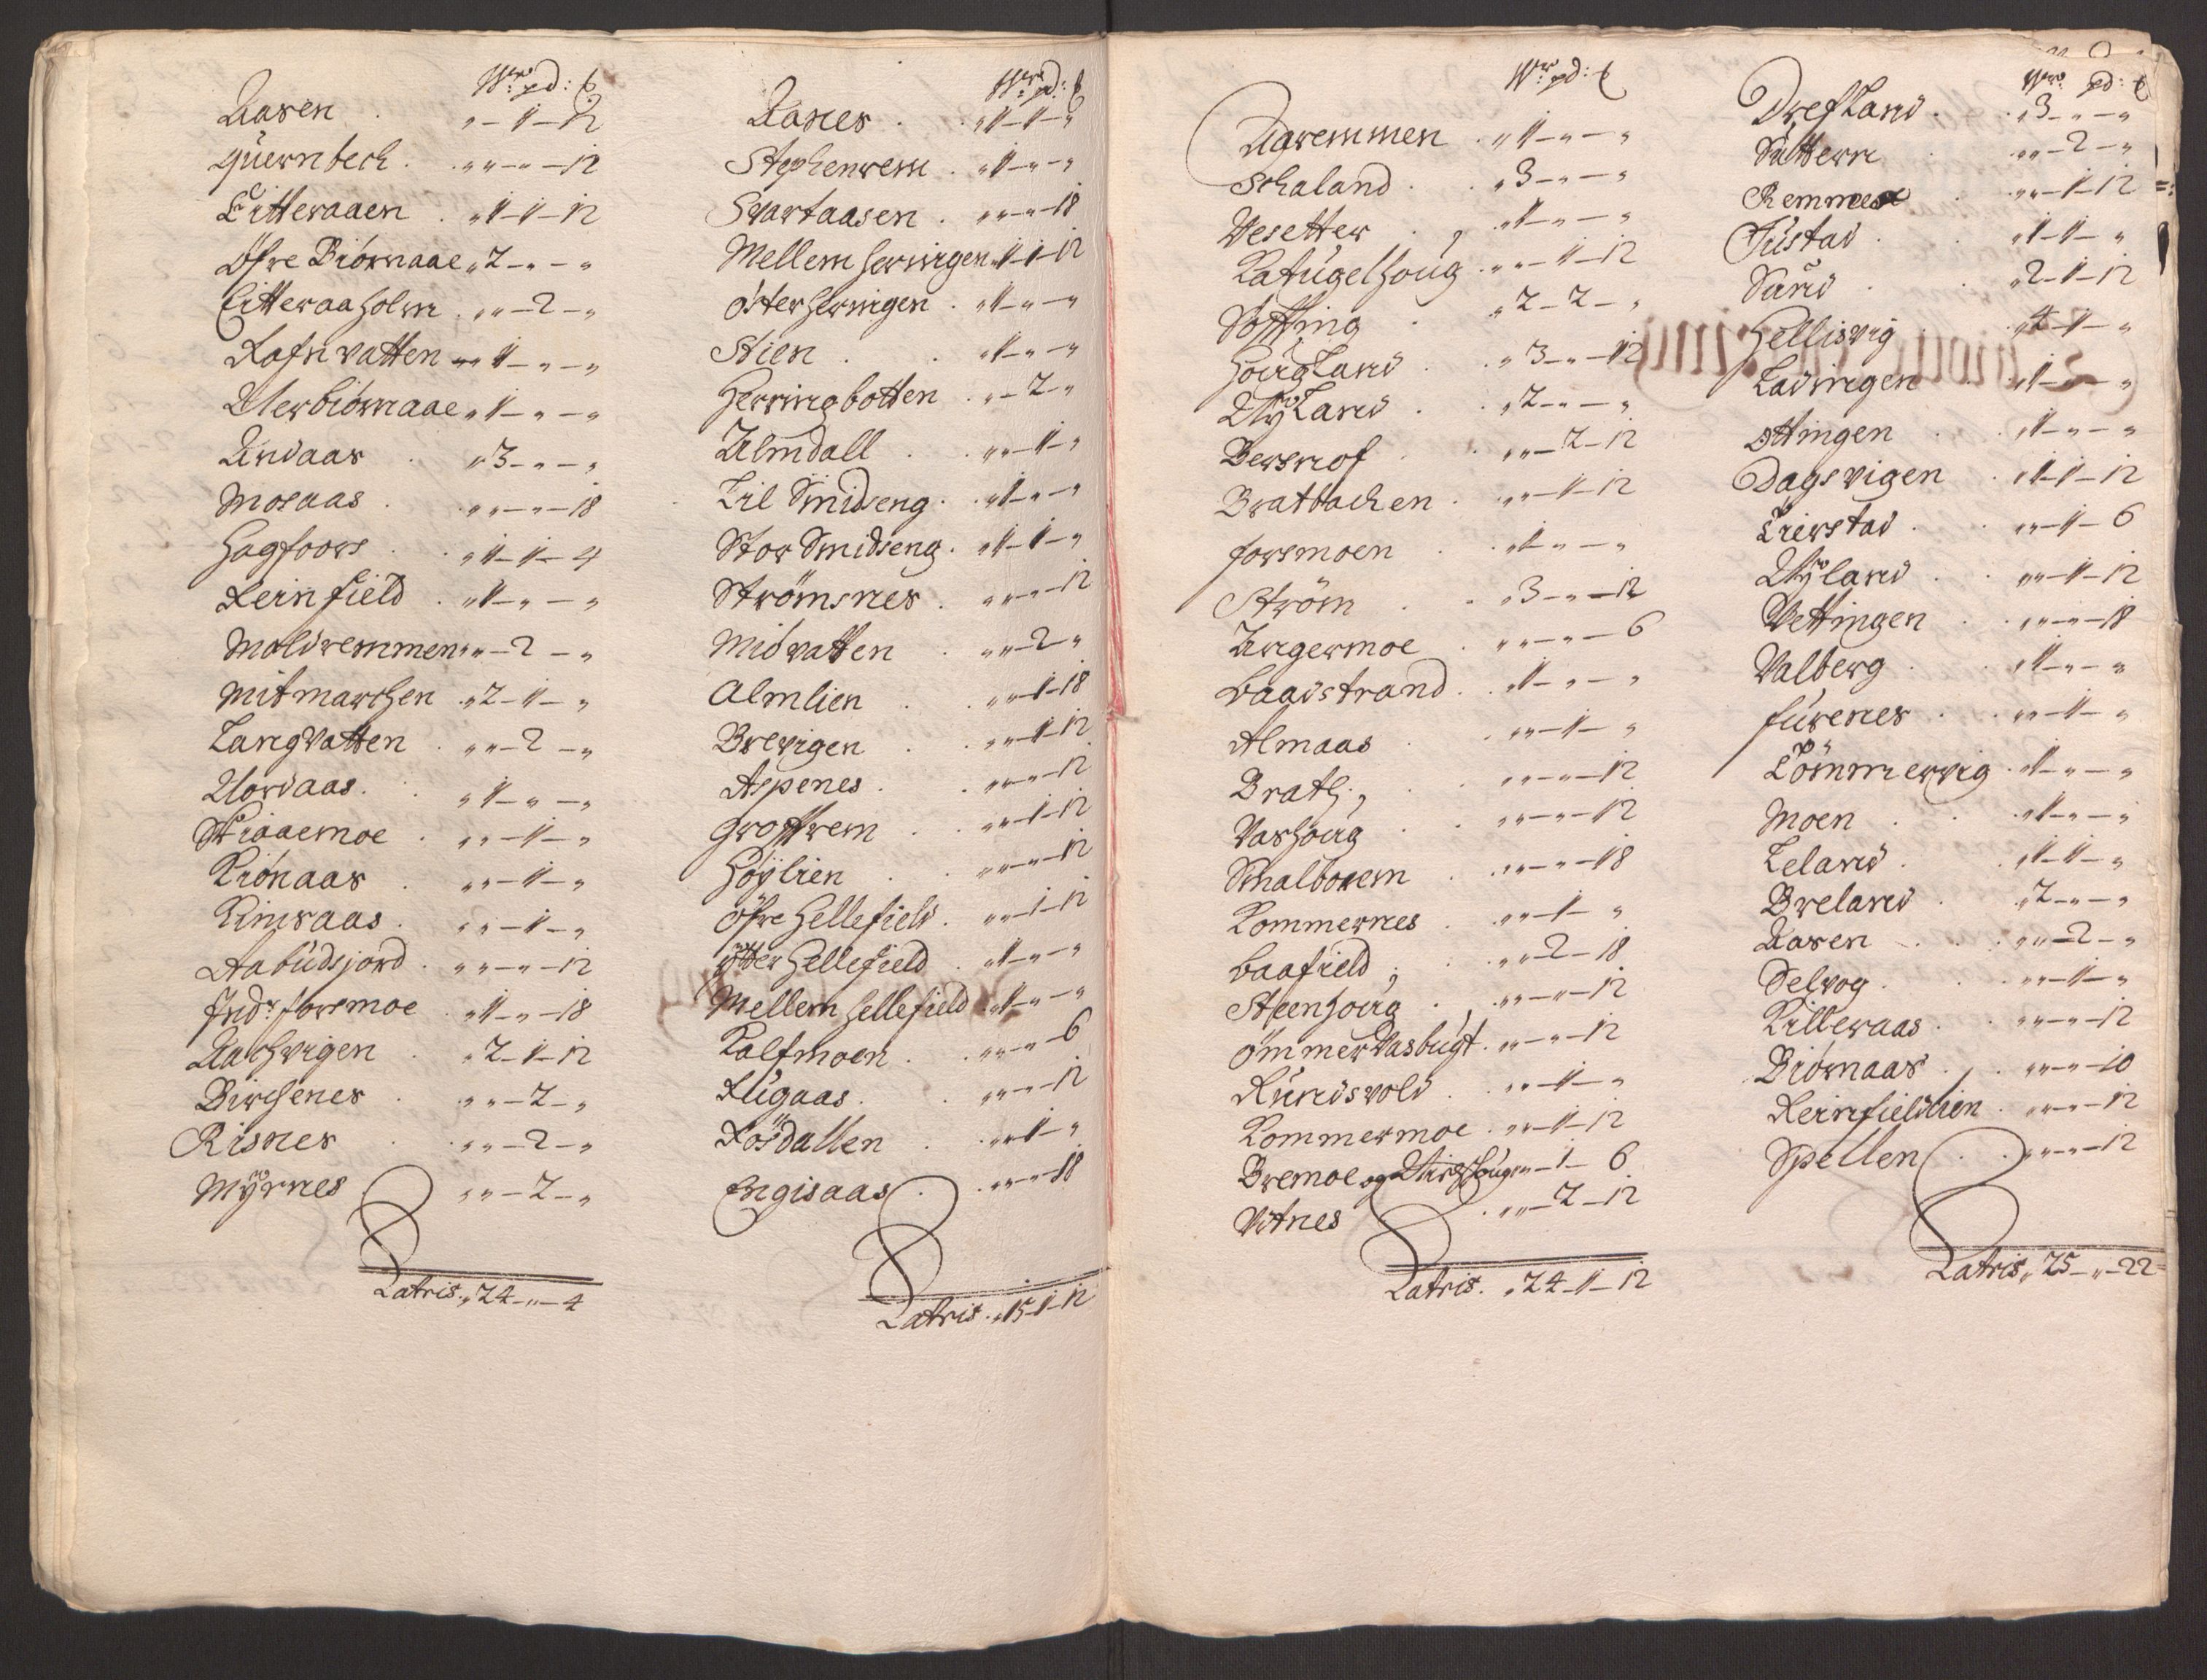 Wr: pd: t
Aasen . „ – 1 – 12
Quernbech . „ „ – „ – 12
Eitteraaen . „ 1 – 1 – 12
Øfre Biørnaae „ 2 – „ – „
Eitteraaholm . „ „ – 2 – „
Rafnvatten „ 1 – „ – „
Uterbiørnaae „ 1 – „ – „
Andaas . „ 3 – „ – „
Mosaas . „ „ – „ – 18
Hagfoors . „ 1 – 1 – 4
Reinfield . „ 1 – „ – „
Moldremmen „ „ – 2 – „
Mitmarchen „ 2 – 1 – „
Langvatten . „ „ – 2 – „
Nordaas . „ 1 – „ – „
Skiaaemoe . „ „ – 1 – „
Kiønaas . „ „ – 1 – „
Kinsaas . „ „ – 1 – „
Aabudsjord . „ „ – „ – 12
Indr forsmoe . „ 1 – „ – 18
Aachvigen . „ 2 – 1 – 12
Birchenes . „ „ – 2 – „
Risnes . „ „ – 2 – „
Myrnes „ „ – 2 – „
Latris . „ 24 – „ – 4
Wr: pd: t
Aanes . „ 1 – 1 – 6
Stephenrem . „ 1 – „ – „
Svartaasen . „ „ – „ – 18
Mellem herringen „ 1 – 1 – 12
Østerherringen . „ 1 – „ – „
Stien . „ 1 – „ – „
Herringbotten . „ – 2 – „
Almdall . „ „ – 1 – „
Lil Smidseng . „ 1 – „ – „
Stor Smidseng . „ 1 – 1 – „
Strømsnes . „ „ – „ – 12
Midvatten . „ „ – 2 – „
Almlien . „ „ – 1 – 18
Brevigen . „ „ – 1 – 12
Aspenes . „ „ – „ – 12
Groffrem . „ „ – 1 – 12
Høylien . „ „ – „ – 12
Øfre Hellefield . „ „ – 1 – 12
ytter Hellefield . „ 1 – „ – „
Mellem Hellefield „ 1 – „ – „
Kalfmoen . „ „ – „ – 6
Rugaas . „ „ – „ – 12
Røsdallen . „ „ – 1 – „
Engisaas . „ „ – „ – 18
Latris . „ 15 – 1 – 12
Wr: pd: t
Aaremmen . „ 1 – „ – „
Schaland . „ 3 – „ – „
Vesetter . „ 1 – „ – „
Katugelhoug . „ „ – 1 – 12
Søffting . „ 2 – 2 – „
Hougland . „ 3 – „ – 12
Nyland . „ 2 – „ – „
Bersnof . „ „ – 2 – 12
Bratbachen . „ „ – 1 – 12
forsmoen . „ 1 – „ – „
Strøm . „ 3 – „ – 12
Angermoe . „ „ – „ – 6
Baadstrand . „ 1 – „ – „
Almaas . „ „ – 1 – „
Brath; . „ „ – „ – 12
Vashoug . „ „ – „ – 12
Smalborem . „ „ – „ – 18
Kommernes . „ „ – 1 – „
Baafield; . „ „ – 2 – 18
Steenhoug . „ „ – „ – 12
Ømmervasbugt . „ „ – „ – 12
Rundsvold . „ „ – 1 – „
Kommermoe . „ „ – 1 – 12
Bremoe og „ – 1 – 6
Vitnes . „ „ – 2 – 12
Latris . „ 24 – 1 – 12
Wr: pd: t
Drefland . „ 3 – „ – „
Suttern . „ „ – 2 – „
Remmen . „ „ – 1 – 12
Fustad . „ 1 – 1 – „
Sund . „ 2 – 1 – 12
Hellisvig . „ 4 – 1 – „
Ladingen . „ 1 – „ – „
Ottingen . „ 1 – „ – „
Dagsvigen . „ 1 – 1 – 12
Lierstad . „ „ – 1 – 6
Nyland . „ „ – 1 – 12
Vettingen . „ „ – „ – 18
Valberg . „ 1 – „ – „
furenes . „ „ – 1 – „
Tømmervig . „ 1 – „ – „
Moen . „ 1 – „ – „
Leland . „ 1 – 1 – „
Breland . „ 2 – „ – „
Aasen . „ „ – 2 – „
Selvog . „ „ – 1 – „
Killeraas . „ „ – „ – 12
Biørnaas . „ „ – „ – 10
Reinfieldlien . „ „ – „ – 12
Spellen . „ „ – „ – 12
Latris „ 25 – „ – 22